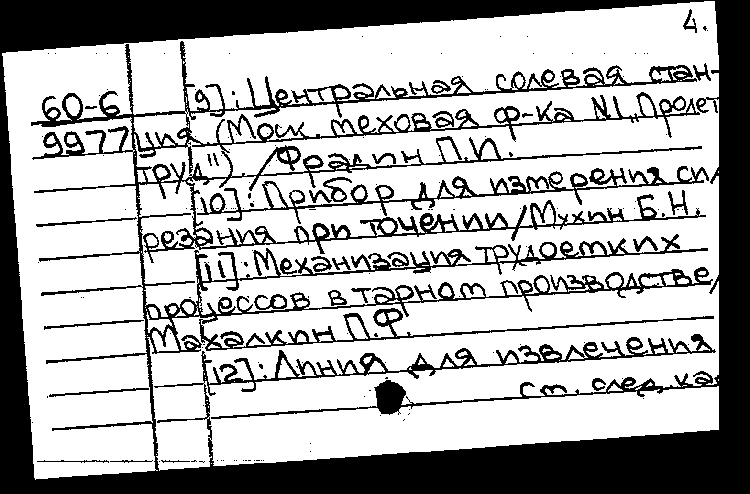 4.
60-6 [9]: Центральная солевая стан-
9977 ция (Моск. меховая ф-ка N1 „Пролет.
труд"). / Фрадин П.И.
[10]: Прибор для измерения сил
резания при точении / Мухин Б.Н.
[11]: Механизация трудоемких
процессов в тарном производстве /
Махалкин П.Ф.
[12]: Линия для извлечения
см. след. ка